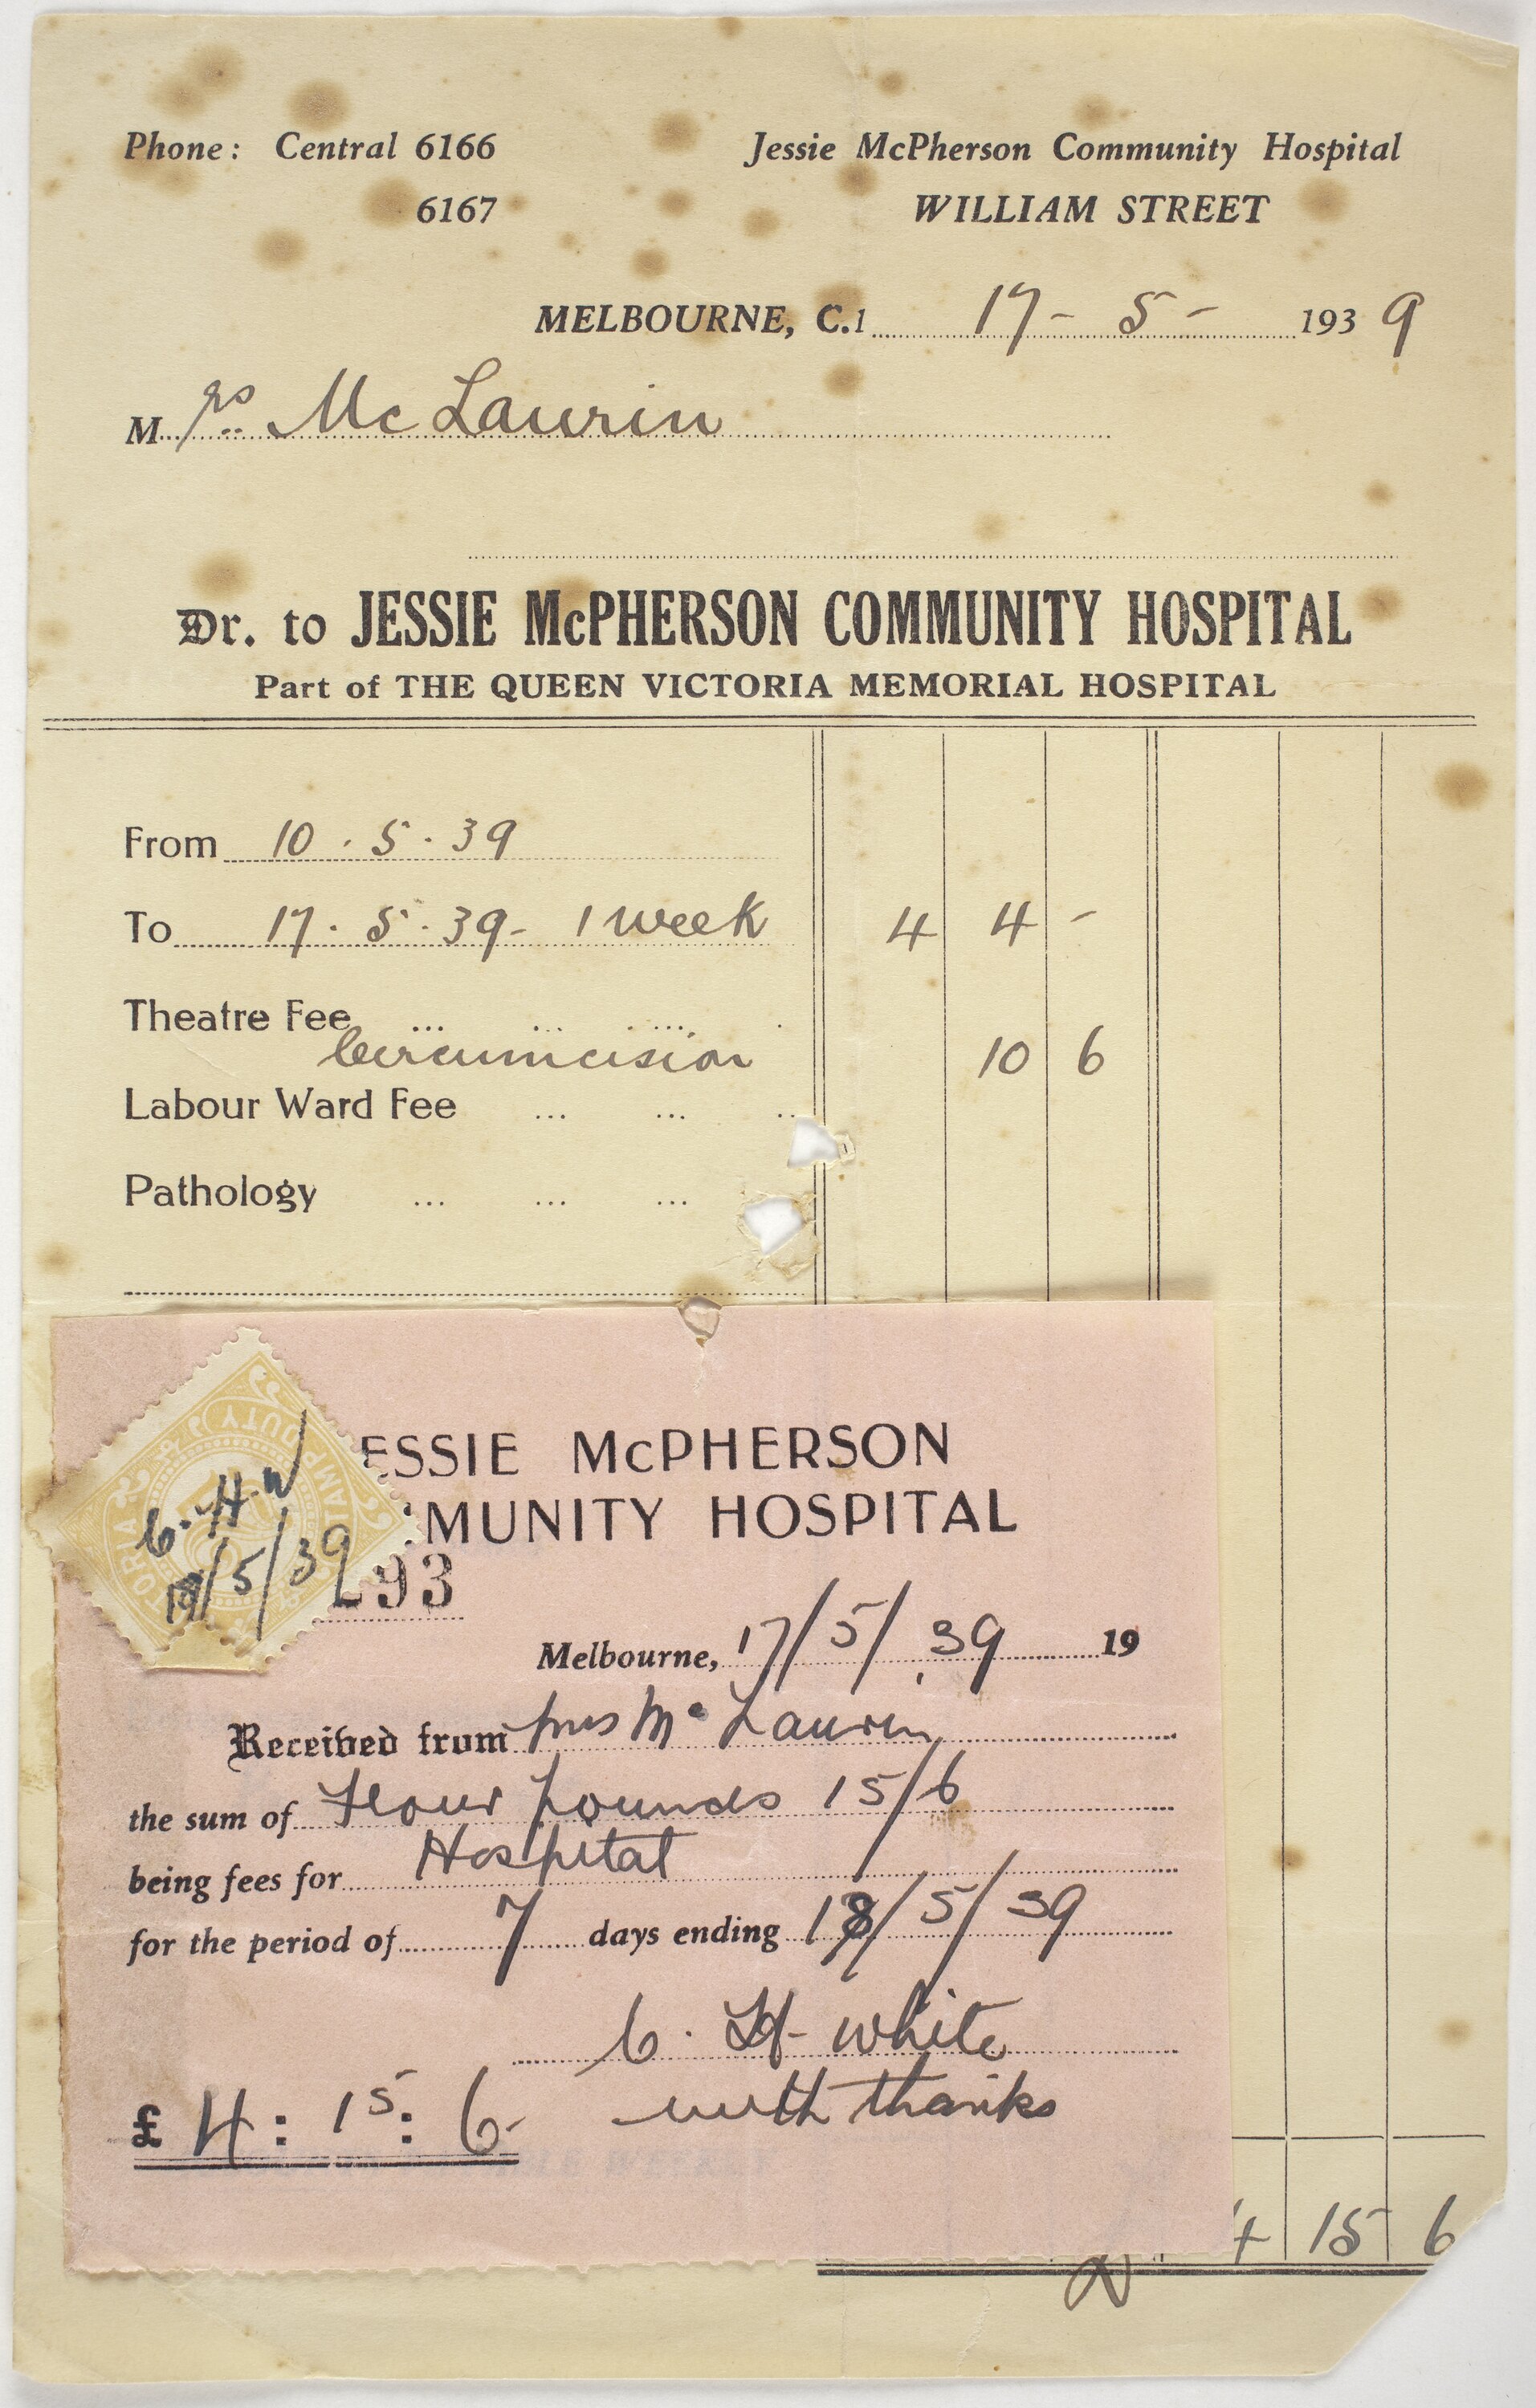 Phone: Central 6166 Jessie McPherson Community Hospital
6167 WILLIAM STREET
MELBOURNE, C.1 17 - 5 - 1939
Mrs Mc Laurin
Dr. to JESSIE McPHERSON COMMUNITY HOSPITAL
Part of THE QUEEN VICTORIA MEMORIAL HOSPITAL
From 10 . 5 . 39
To 17 . 5 . 39 - 1 week 4 4 -
Theatre Fee ... ... ...
Circumcision 10 6
Labour Ward Fee ... ... ...
Pathology ... ... ...
ESSIE McPHERSON
MUNITY HOSPITAL
STAMP DUTY
C. H. W
17/5/39
93
Melbourne, 17/5/39 19
Received from Mrs Mc Laurin
the sum of Four pounds 15/6
being fees for Hospital
for the period of 7 days ending 18/5/39
C. H. White
£ 4 : 15 : 6 - with thanks
4 15 6